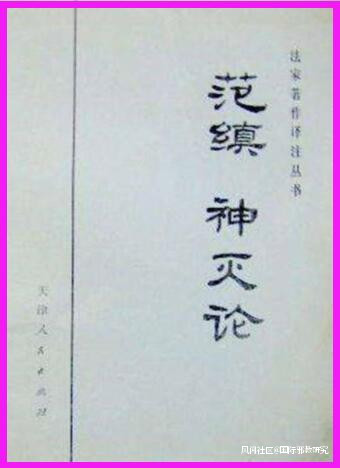 法家著作译注丛书
范缜 神灭论
天津人民出版社
风月社区@国际邪教研究